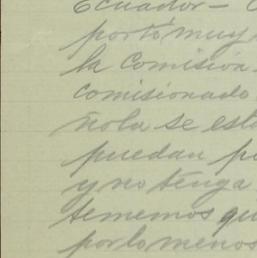 Ecuador —
portó muy
la comisión.
comisionado
ñola se est
puedan p
y no tenga
tememos qu
por lo menos